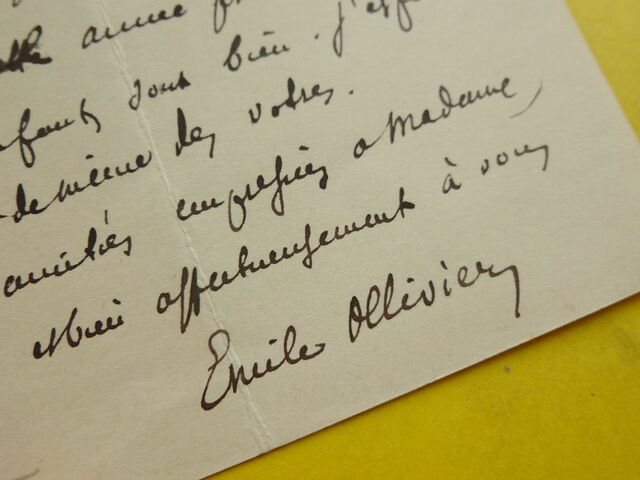 année
enfants sont bien. j'esp
de même des votres.
amitiés empressées a Madame
et bien affectueusement à vous
Emile Ollivier